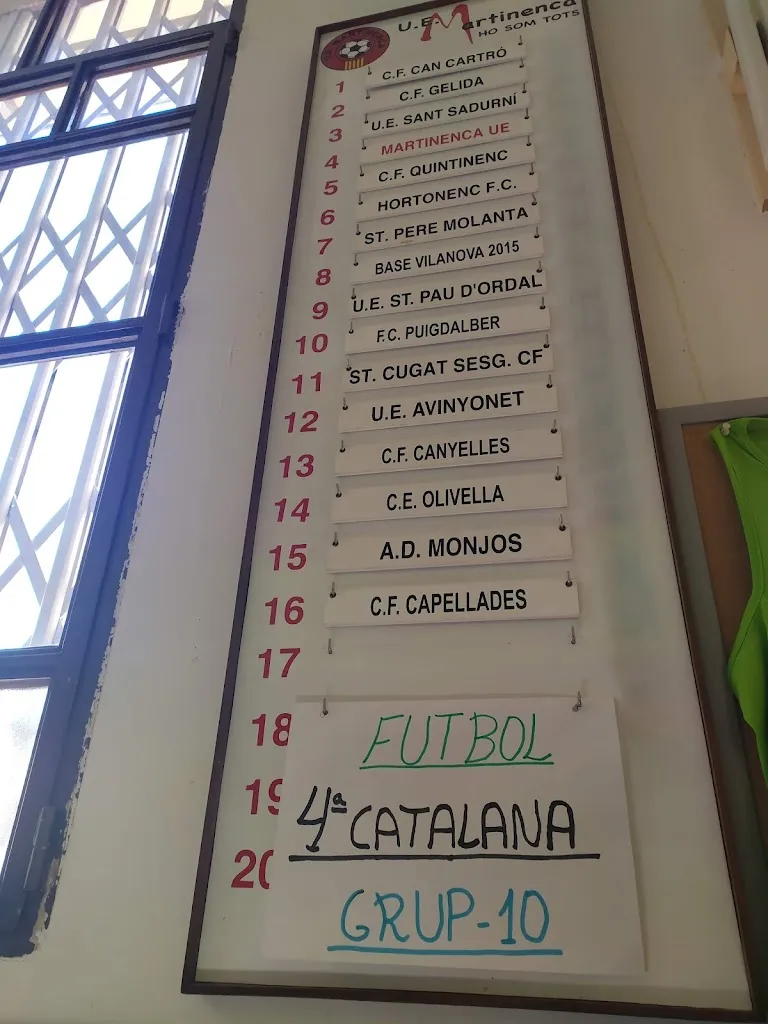 U.E Martinenca
HO SOM TOTS
1 C.F. CAN CARTRÓ
2 C.F. GELIDA
3 U.E. SANT SADURNÍ
4 MARTINENCA UE
5 C.F. QUINTINENC
6 HORTONENC F.C.
7 ST. PERE MOLANTA
8 BASE VILANOVA 2015
9 U.E. ST. PAU D'ORDAL
10 F.C. PUIGDALBER
11 ST. CUGAT SESG. CF
12 U.E. AVINYONET
13 C.F. CANYELLES
14 C.E. OLIVELLA
15 A.D. MONJOS
16 C.F. CAPELLADES
17
18
19
20
FUTBOL
4ª CATALANA
GRUP-10